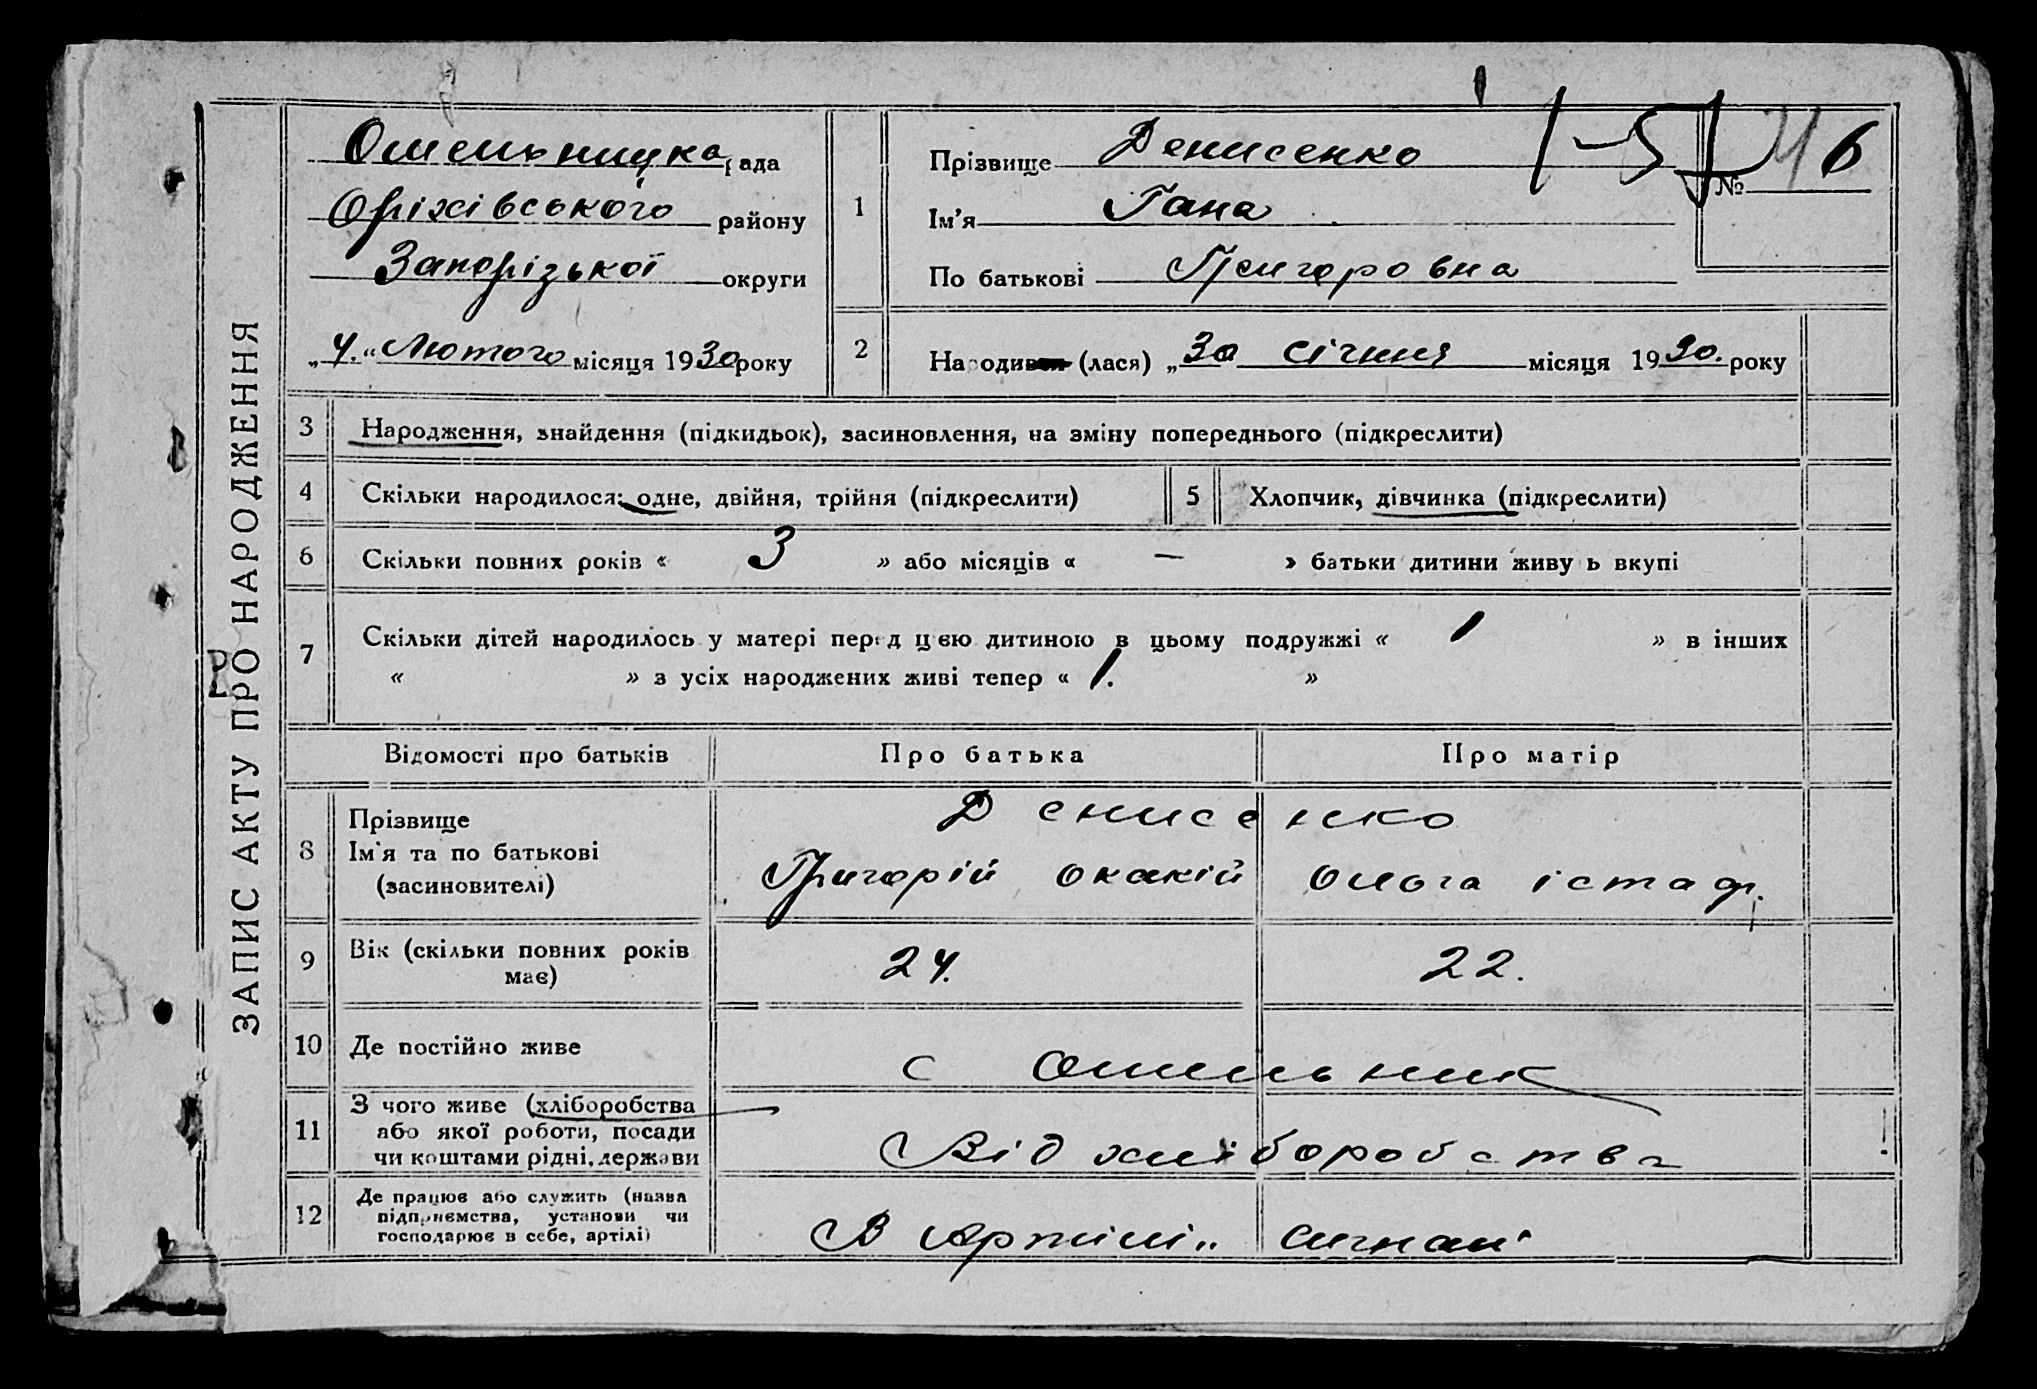 ЗАПИС АКТУ ПРО НАРОДЖЕННЯ
Омельницка рада
Оріхівського району
Запорізької округи
„4.“ Лютого місяця 1930 року
1
Прізвище Денисенко
Ім'я Гана
По батькові Григоровна
№ 6
2
Народив (лася) „30 січння місяця 1930. року
3 Народження, знайдення (підкидьок), засиновлення, на зміну попереднього (підкреслити)
4 Скільки народилося: одне, двійня, трійня (підкреслити) 5 Хлопчик, дівчинка (підкреслити)
6 Скільки повних років « 3 » або місяців « — » батьки дитини живу ь вкупі
7 Скільки дітей народилось у матері перед цією дитиною в цьому подружжі « 1 » в інших
« » з усіх народжених живі тепер « 1. »
Відомості про батьків Про батька Про матір
8 Прізвище
Ім'я та по батькові
(засиновителі)
Денисенко
Григорій Окакій Олога істаф.
9 Вік (скільки повних років
має)
24. 22.
10 Де постійно живе с Омельник
11 З чого живе (хліборобства
або якої роботи, посади
чи коштами рідні, держави
Від хліборобства
12 Де працює або служить (назва
підприємства, установи чи
господарює в себе, артілі)
В Артілі „ Сигнал"